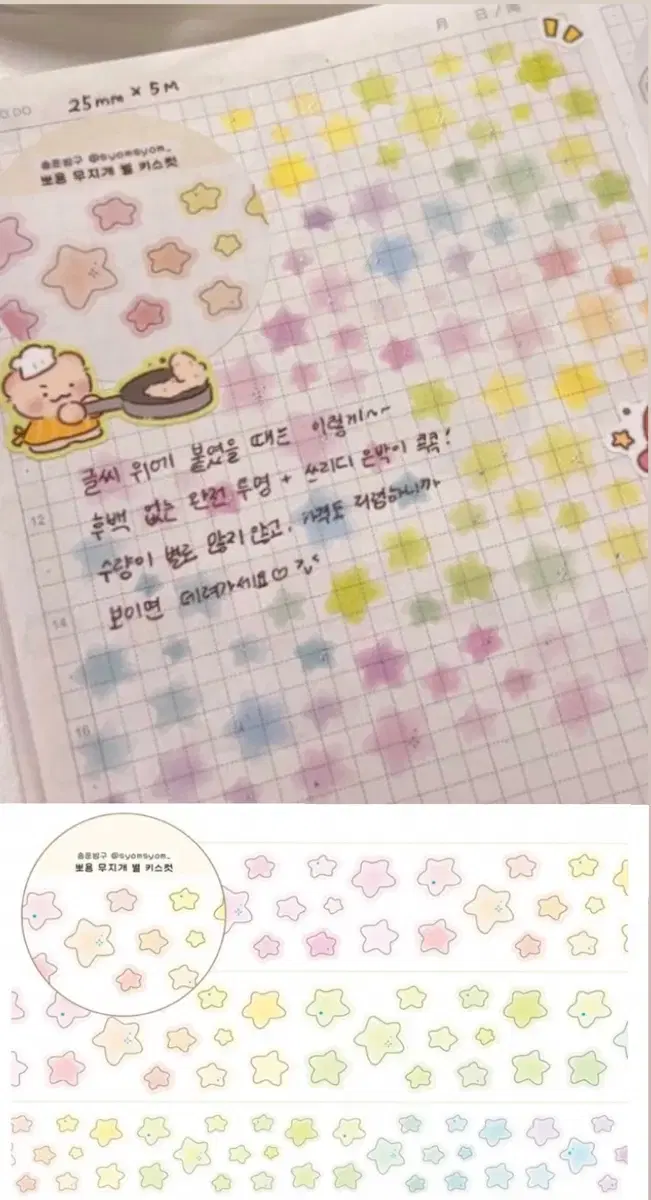 月 日/周
0:00
25mm × 5M
숌숌방구 @syomsyom_
뽀용 무지개 별 키스컷
글씨 위에 붙였을 때는 이렇게~~
후백 없는 완전 투명 + 쓰리디 은박이 콕콕!
수량이 별로 많지 않고, 가격도 저렴하니까
보이면 데려가세요♡
12
14
16
@syomsyom_
뽀용 무지개 별 키스컷